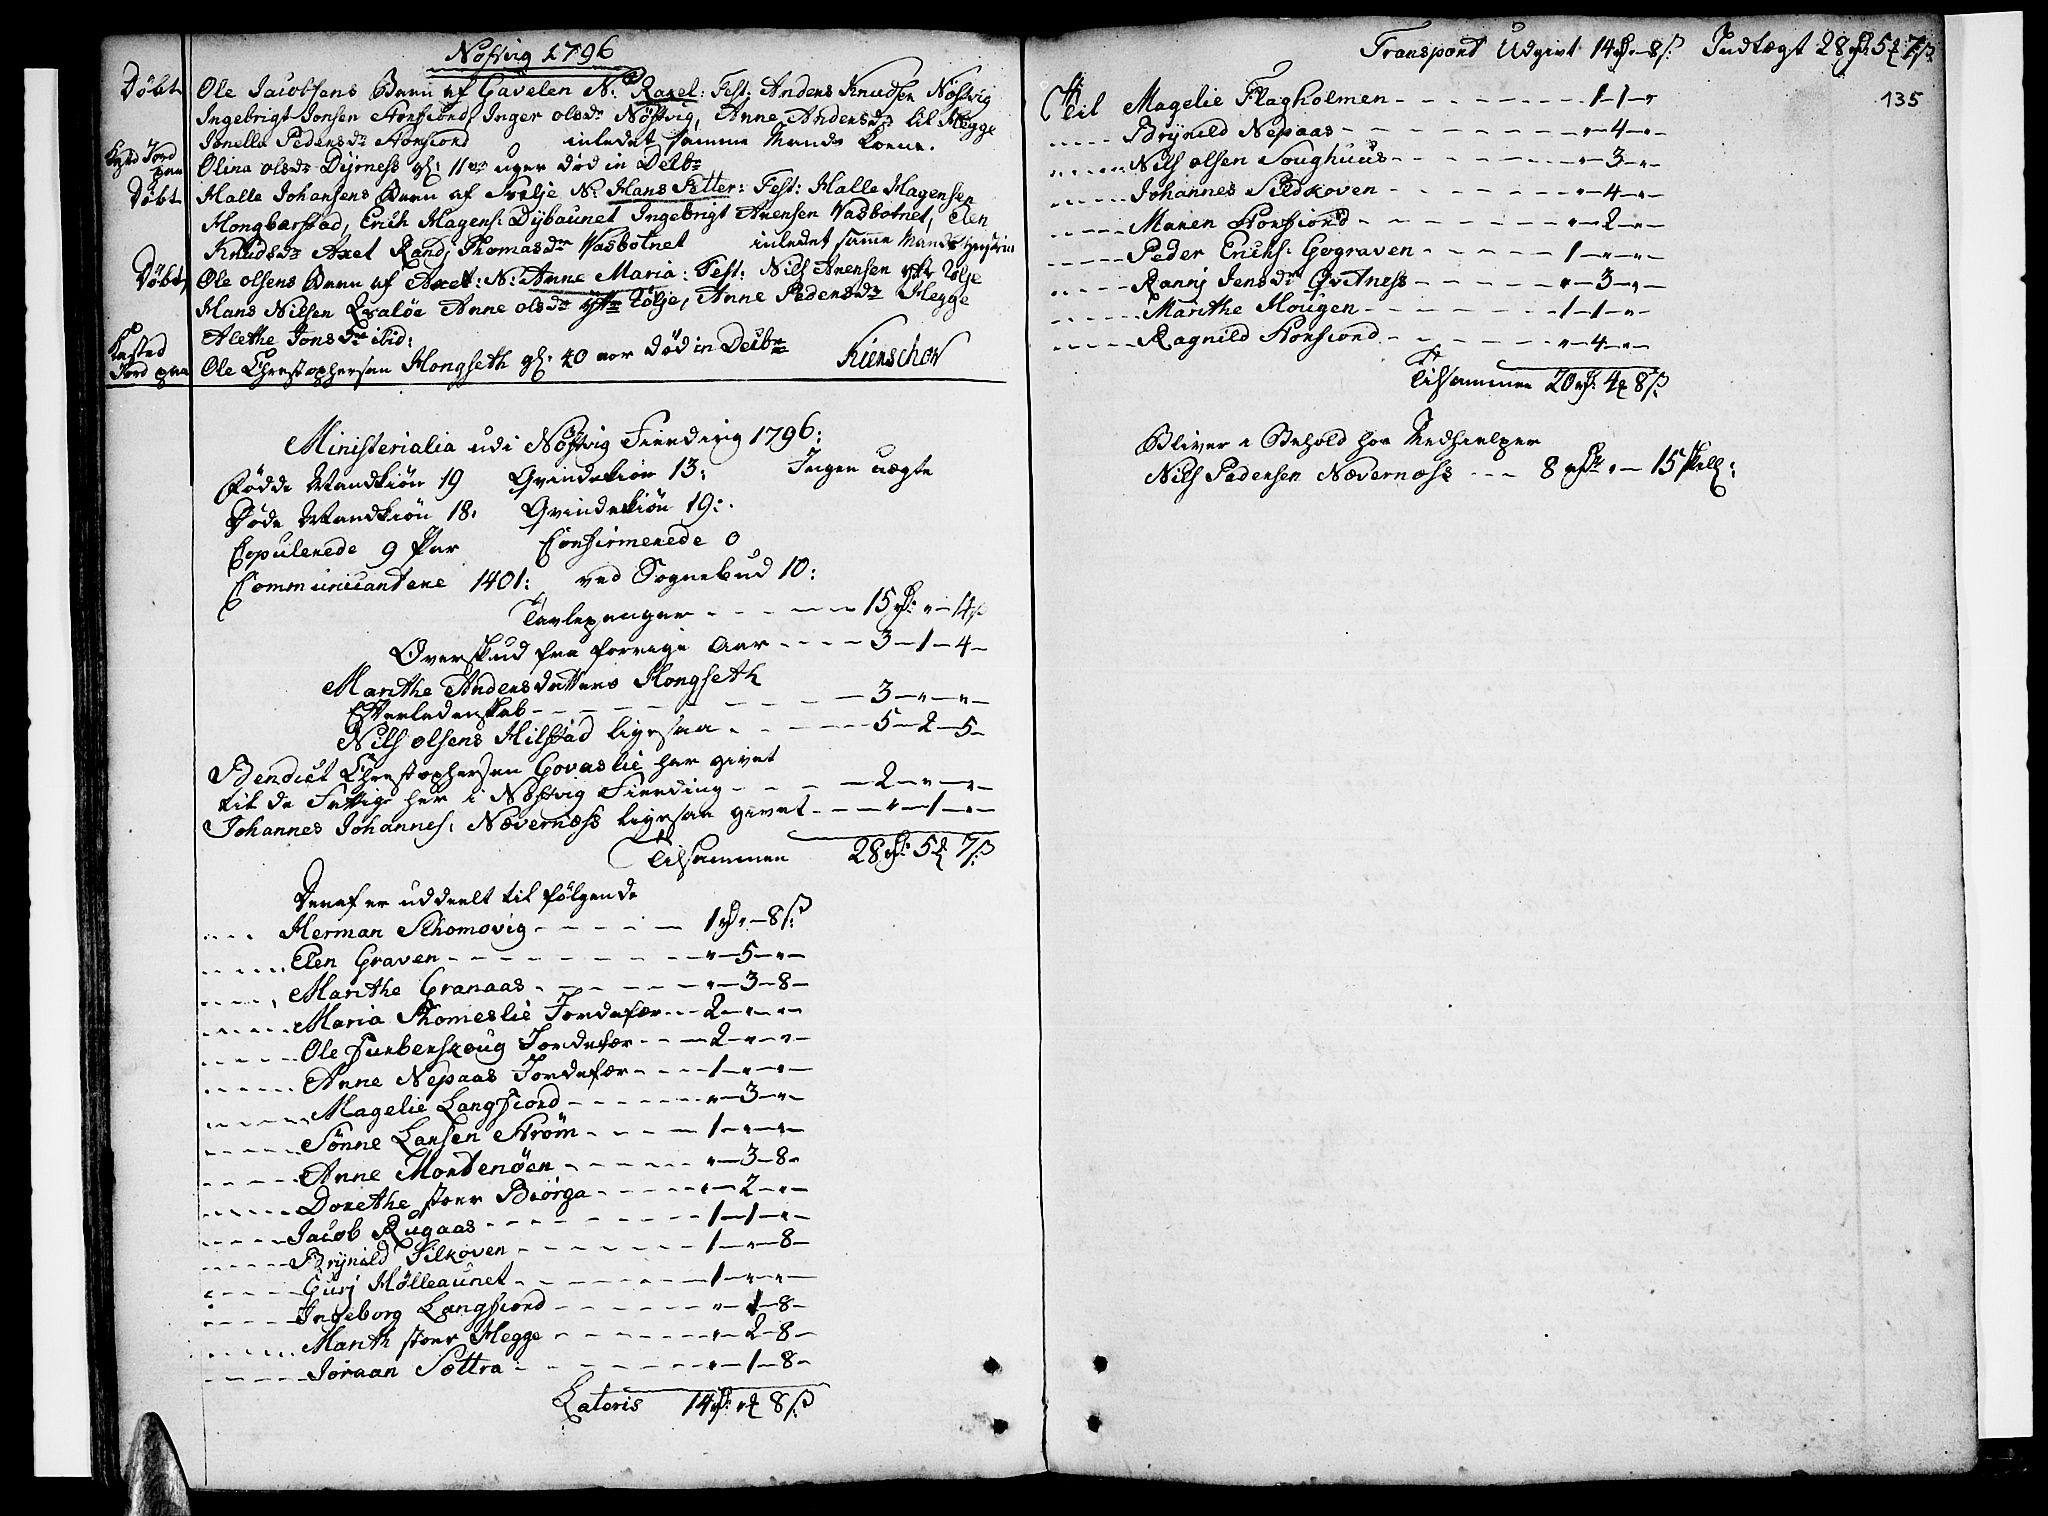 Nøstvig 1796
Døbt Ole Jacobsens Barn af Gavelen N: Raxel: Test: Anders Knudsen Nøstvig
Ingebrigt Jonsen Horsfiord, Inger olsdr Nøstvig, Anne Andersdr lil Hegge
Jonella Pedersdr Horsfiord inledet samme Mands Kone.
Kasted Jord paa Olina olsdr Dyrness gl: 11 uger død in Decbr
Døbt Halle Johansens Barn af Svelje N: Hans Petter: Test: Halle Hagensen
Hongbarstad, Erich Hagens: Dybaunet Ingebrigt Arensen Vasbotnet, Elen
Knudsdr Axet Randj Thomasdr Vasbotnet inledet samme Mands Hustrue
Døbt Ole olsens Barn af Axet: N: Anne Maria: Test: Nils Arensen yttr Tølje
Hans Nilsen Qvaløe Anne olsdr yttr Tølje, Anne Pedersdr Hegge
Alethe Jonsdr ibid:
Kasted Jord paa Ole Christophersen Hongseth gl: 40 aar død in Decbr Kierschow
Ministerialia udi Nøstvig Fierding 1796:
Fødde Mandkiøn 19 Qvindekiøn 13: Ingen uægte
Døde Mandkiøn 18: Qvindekiøn 19:
Copulerede 9 Par Confirmerede 0
Communicantere 1401: ved Sognebud 10:
Tavlepenger - - - - 15 rd: " - 14 s
Overskud fra forrige Aar - - - - 3 - 1 - 4 -
Marithe Andersdatters Hongseth
Efterladenskab - - - - - - 3 - " - " -
Nils olsens Hilstad ligesaa - - - - 5 - 2 - 5 -
Bendict Christophersen Govaslie har givet
til de Fattige her i Nøstvig Fierding - - - - 2 - " - " -
Johannes Johannes: Nævernæss ligesaa givet - - - " - 1 - " -
Tilsammen 28 rd: 5 7 s:
Deraf er uddeelt til følgende
- - - Herman Thomovig - - - - 1 rd " - 8 s:
- - - Elen Graven - - - - " - 5 - " -
- - - Marithe Granaas - - - - " - 3 - 8 -
- - - Maria Thomeslie Jordefær - - 2 - " - " -
- - - Ole Furberskoug Jordefær - - - 2 - " - " -
- - - Anne Nepaas Jordefær - - - 1 - " - " -
- - - Magelie Langfiord - - - - " - 3 - " -
- - - Sønne Larsen Strøm - - - 1 - " - " -
- - - Anne Mortenøen - - - - " - 3 - 8 -
- - - Dorethe stoer Biørga - - - - " - 2 - " -
- - - Jacob Rugaas - - - - 1 - 1 - " -
- - - Brynild Silkoven - - - - 1 - " - 8 -
- - - Gurj Mølleaunet - - - - 1 - " - " -
- - - Ingeborg Langfiord - - - - " - 1 - 8 -
- - - Marith stoer Hegge - - - - " - 2 - 8 -
- - - Joraan Sættra - - - - " - 1 - 8 -
Lateris 14 rd: " 8 s:
Transport Udgivt 14 rd " - 8 s: Indtægt 28 rd: 5 7 s:
135
Til Magelie Flagholmen - - - - 1 - 1 - "
- - - Brynild Nepaas - - - - " - 4 - " -
- - - Nils olsen Soughuus - - - - " - 3 - " -
- - - Johannes Sildkoven - - - - " - 4 - " -
- - - Maren Horsfiord - - - - " - 2 - " -
- - - Peder Erichs: Gograven - - - - 1 - " - " -
- - - Rannj Jensdr Qvitness - - - - " - 3 - " -
- - - Marithe Hougen - - - - 1 - 1 - " -
- - - Ragnild Horsfiord - - - - " - 4 - " -
Tilsammen 20 rd: 4 8 s:
Bliver i Behold hos Medhielper
Nils Pedersen Nævernæss - - - 8 rd " - 15 skell: